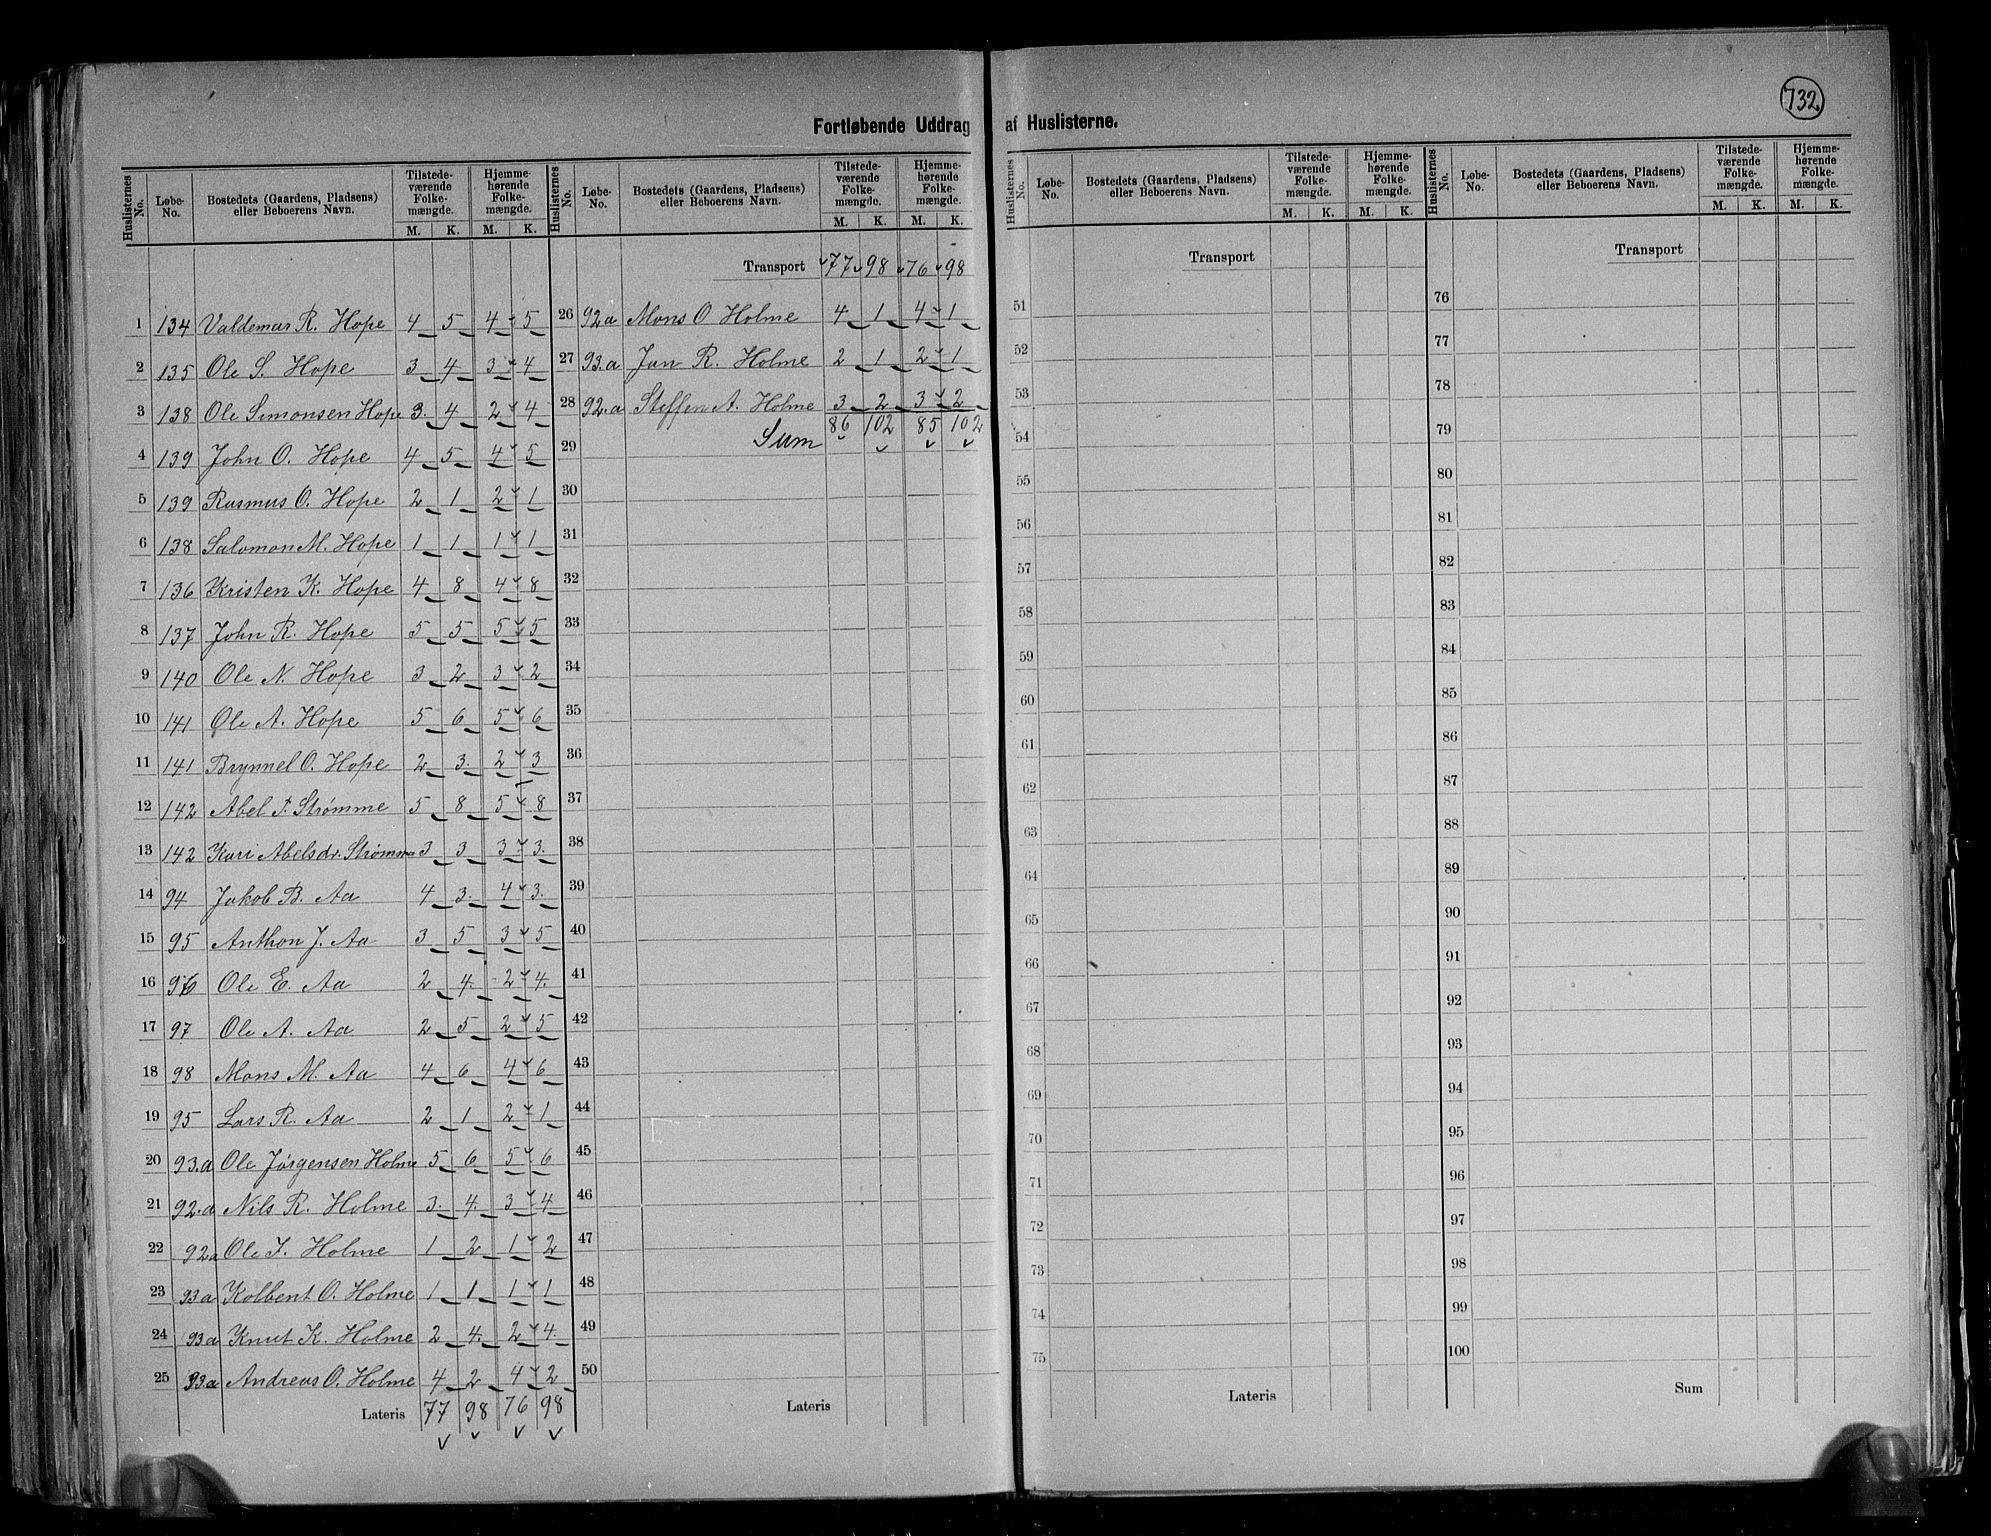 732
Fortløbende Uddrag af Huslisterne.
Huslisternes No. Løbe-No. Bostedets (Gaardens, Pladsens) eller Beboerens Navn. Tilstede-værende Folke-mængde. M. K. Hjemme-hørende Folke-mængde. M. K.
1 134 Valdemar R. Hope 4 5 4 5
2 135 Ole S. Hope 3 4 3 4
3 138 Ole Simonsen Hope 3. 4 2 4
4 139 John O. Hope 4 5 4 5
5 139 Rasmus O. Hope 2 1 2 1
6 138 Salomon M. Hope 1 1 1 1
7 136 Kristen K. Hope 4 8 4 8
8 137 John R. Hope 5 5 5 5
9 140 Ole N. Hope 3 2 3 2
10 141 Ole A. Hope 5 6 5 6
11 141 Brynnel O. Hope 2 3. 2 3
12 142 Abel T. Strømme 5 8 5 8
13 142 Kari Abelsdr. Strømme 3 3 3 3.
14 94 Jakob B. Aa 4 3. 4 3.
15 95 Anthon J. Aa 3 5 3 5
16 96 Ole E. Aa 2 4. 2 4.
17 97 Ole A. Aa 2 5 2 5
18 98 Mons M. Aa 4 6 4 6
19 95 Lars R. Aa 2 1 2 1
20 93.a Ole Jørgensen Holme 5 6 5 6
21 92.a Nils R. Holme 3. 4. 3 4
22 92a Ole J. Holme 1 2 1 2
23 93a Kolbent O. Holme 1 1 1 1
24 93a Knut K. Holme 2 4. 2 4.
25 93a Andreas O. Holme 4 2 4 2
Lateris 77 98 76 98
Huslisternes No. Løbe-No. Bostedets (Gaardens, Pladsens) eller Beboerens Navn. Tilstede-værende Folke-mængde. M. K. Hjemme-hørende Folke-mængde. M. K.
Transport 77 98 76 98
26 92a Mons O Holme 4 1 4 1
27 93.a Jan R. Holme 2 1 2 1
28 92.a Steffen A. Holme 3 2 3 2
29 Sum 86 102 85 102
30
31
32
33
34
35
36
37
38
39
40
41
42
43
44
45
46
47
48
49
50
Lateris
Huslisternes No. Løbe-No. Bostedets (Gaardens, Pladsens) eller Beboerens Navn. Tilstede-værende Folke-mængde. M. K. Hjemme-hørende Folke-mængde. M. K.
Transport
51
52
53
54
55
56
57
58
59
60
61
62
63
64
65
66
67
68
69
70
71
72
73
74
75
Lateris
Huslisternes No. Løbe-No. Bostedets (Gaardens, Pladsens) eller Beboerens Navn. Tilstede-værende Folke-mængde. M. K. Hjemme-hørende Folke-mængde. M. K.
Transport
76
77
78
79
80
81
82
83
84
85
86
87
88
89
90
91
92
93
94
95
96
97
98
99
100
Sum